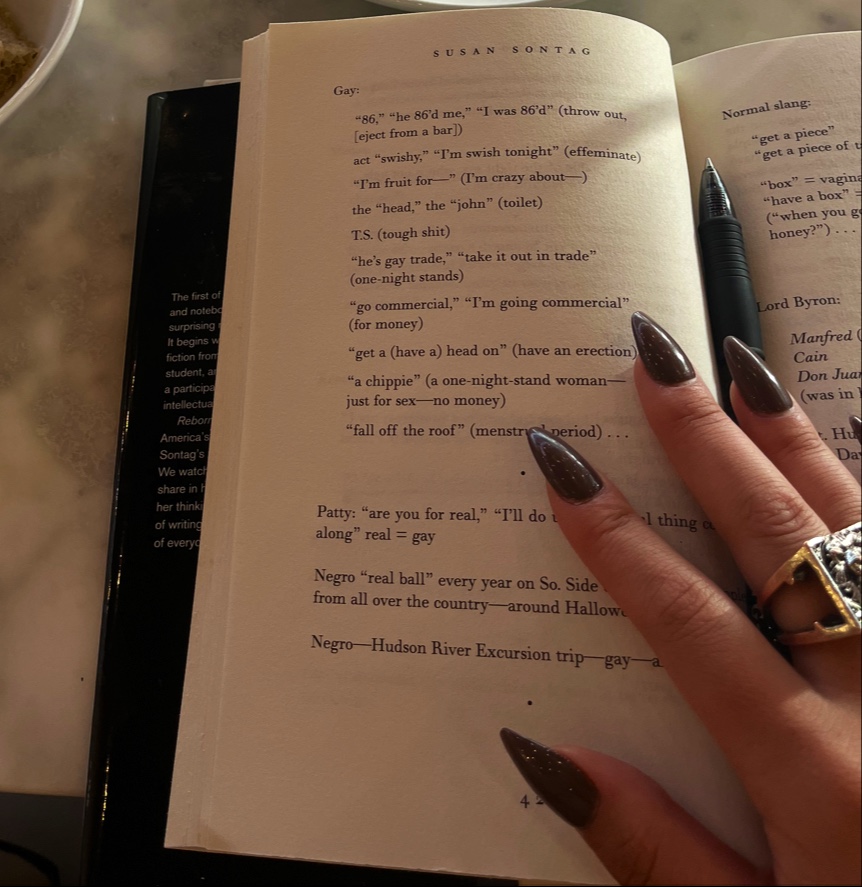 SUSAN SONTAG
Gay:
“86,” “he 86’d me,” “I was 86’d” (throw out,
[eject from a bar])
act “swishy,” “I’m swish tonight” (effeminate)
“I’m fruit for—” (I’m crazy about—)
the “head,” the “john” (toilet)
T.S. (tough shit)
“he’s gay trade,” “take it out in trade”
(one-night stands)
“go commercial,” “I’m going commercial”
(for money)
“get a (have a) head on” (have an erection)
“a chippie” (a one-night-stand woman—
just for sex—no money)
“fall off the roof” period) . . .
Patty: “are you for real,” “I’ll do thing
along” real = gay
Negro “real ball” every year on So. Side
from all over the country—around
Negro—Hudson River Excursion trip—gay—
4
Normal slang:
“get a piece”
“get a piece of
“box” =
“have a box” =
(“when you
honey?”) . . .
Lord Byron:
Manfred (
Cain
Don
(was in
The first of
and
surprising
It begins
fiction from
student,
a
Reborn
America’s
Sontag’s
We watch
share in
her
of writing
of